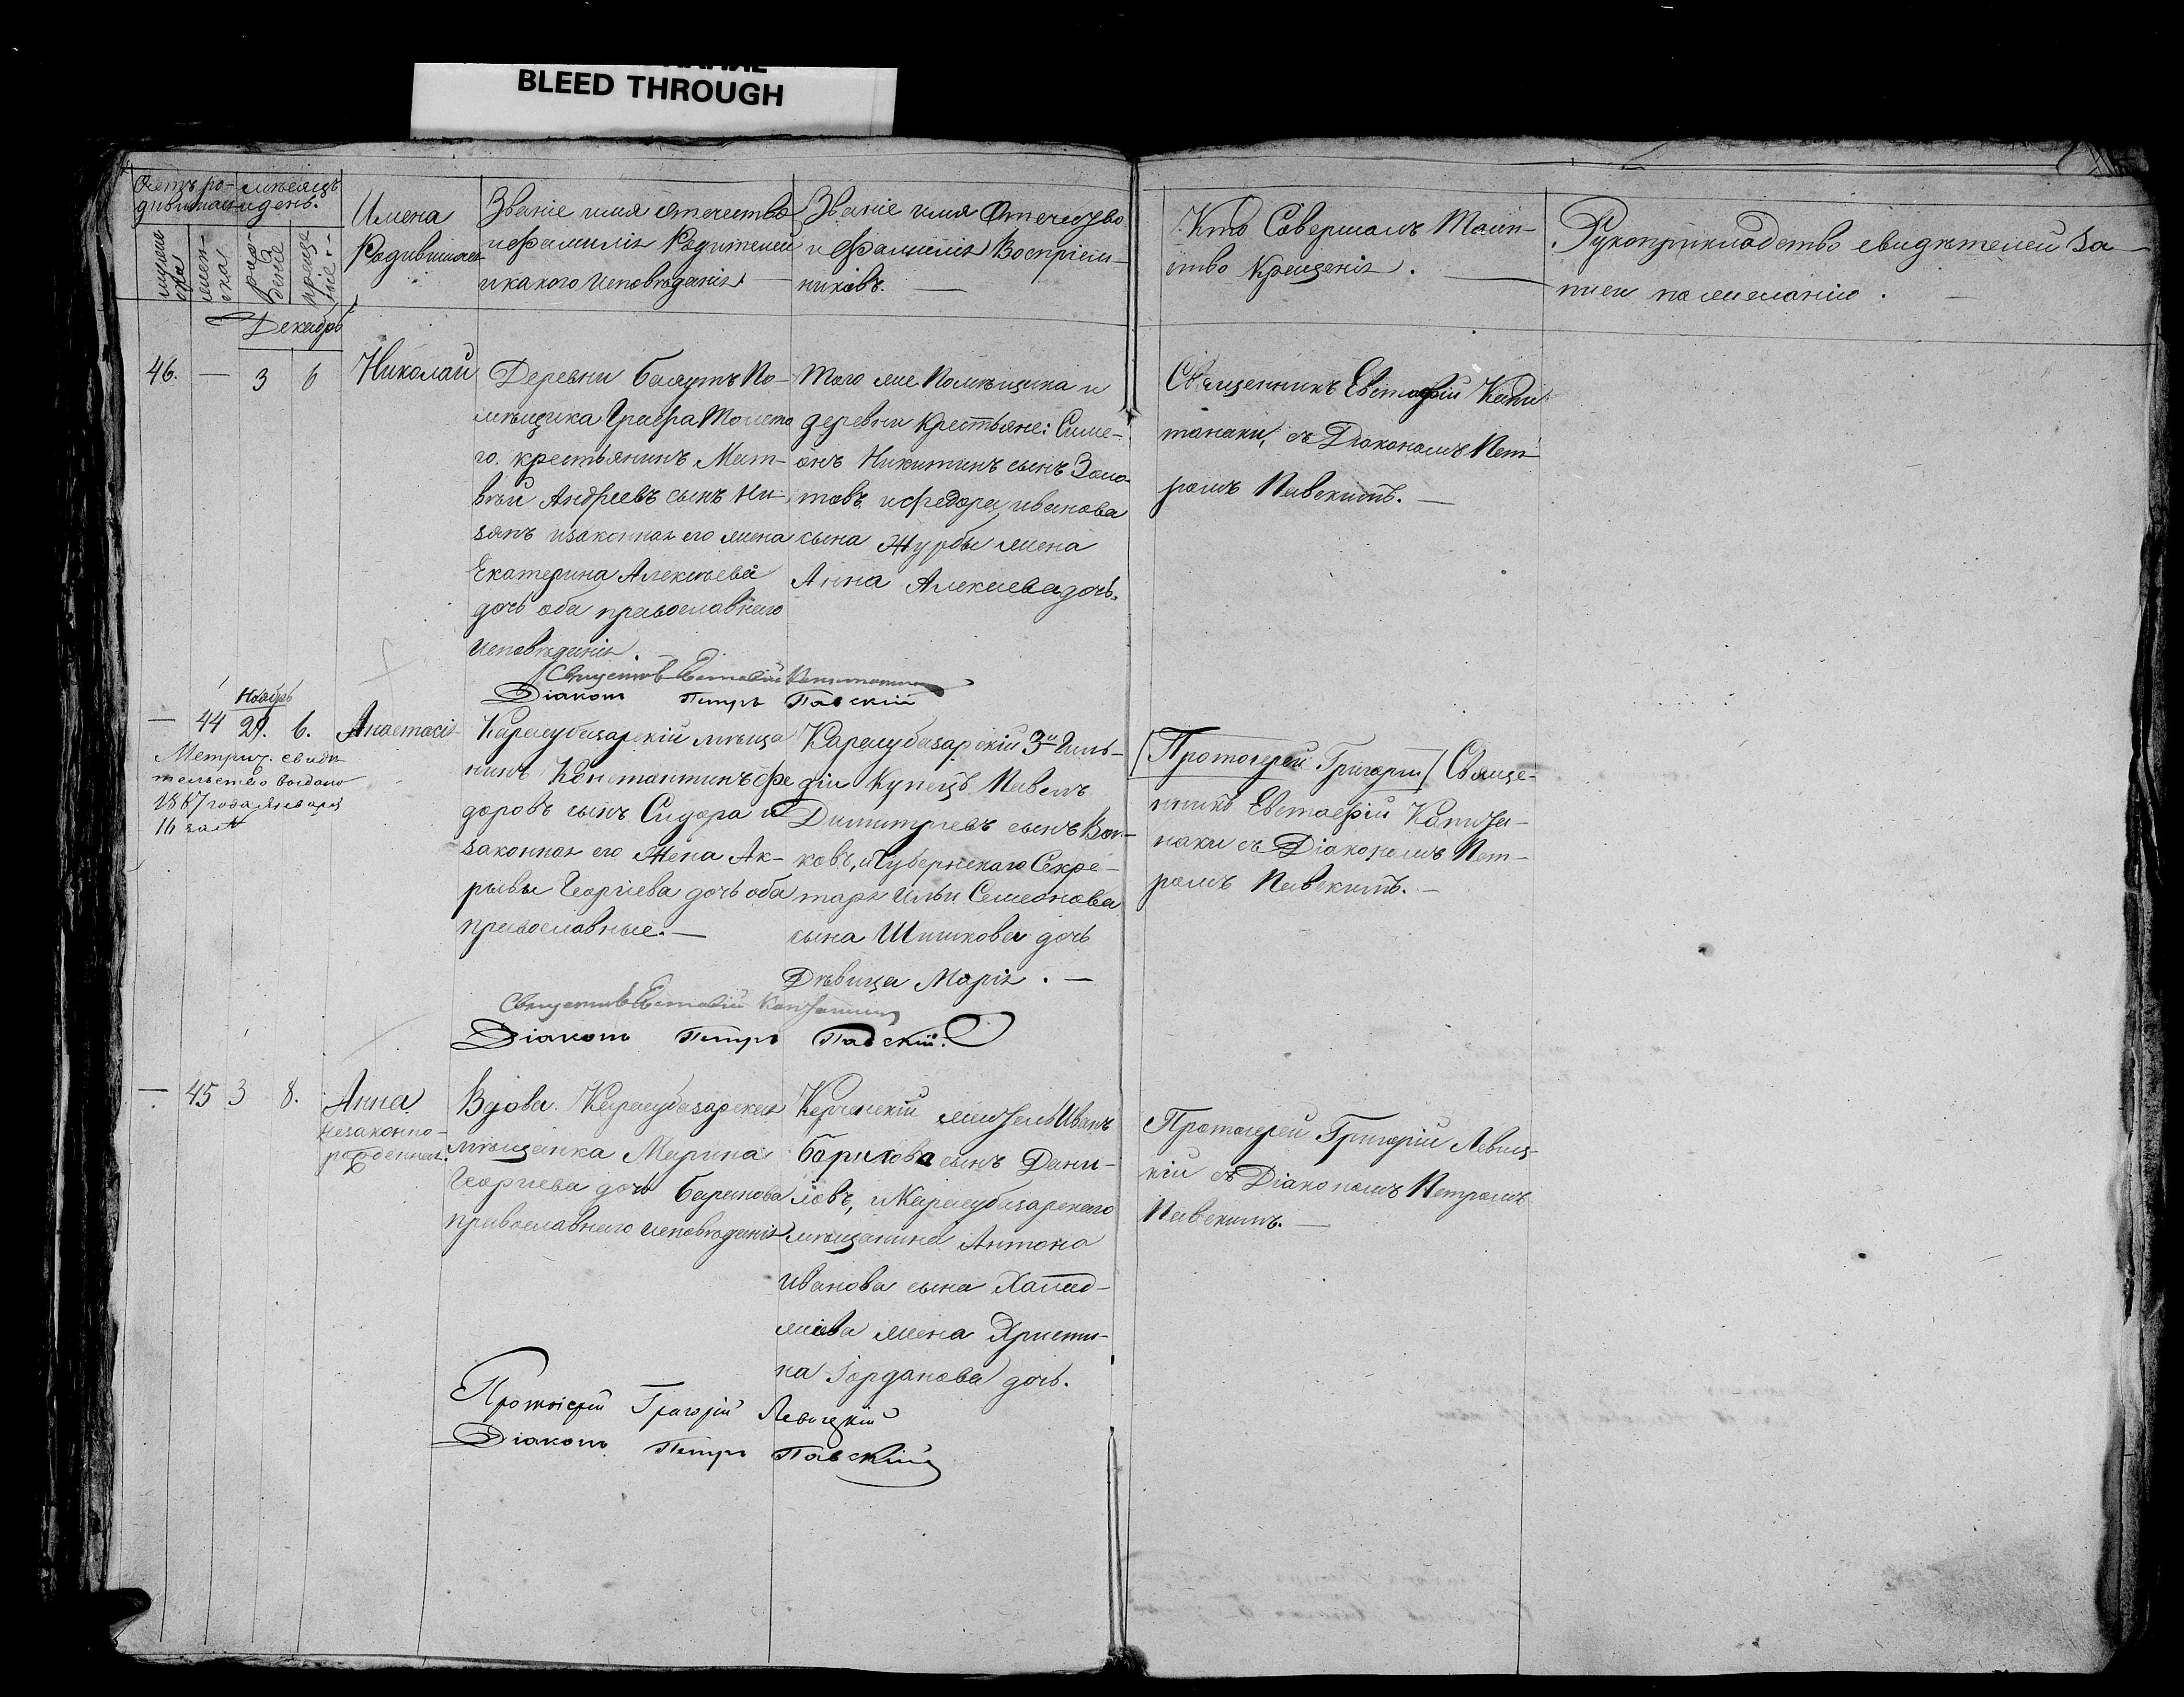 BLEED THROUGH
Счетъ ро-
дившихся
мужеска
женска
мѣсяцъ
и день.
рож-
деніе
креще
ніе
Имена
Родившихся
Званіе имя отечество
и Фамилія Родителей
и какого исповѣданія
Званіе имя Отечество
и Фамилія Воспріем-
никовъ. —
Кто Совершалъ Таин-
ство Крещенія. —
Рукоприкладство свидѣтелей за-
писи по желанію. —
Декабрь
46. — 3 6 Николай
Деревни По-
мѣщика Графа
го. крестьянинъ Мат-
вѣй Андреевъ сынъ Ни-
занъ и законная его жена
Екатерина Алексѣева
дочь оба православнаго
исповѣданія.
Того же Помѣщика и
деревни Крестьяне: Симе-
онъ Никитинъ сынъ Золо-
товъ и Федора Иванова
сына Журбы жена
Анна Алексеева дочь.
Священникъ Евстафій Капи-
танаки, съ Діакономъ Пет-
ромъ Павскимъ. —
Священникъ Евстафій Капитанаки
Діаконъ Петръ Павскій
Ноябрь
— 44 29. 6. Анастасія
Метрич. свидѣ-
тельство выдано
1867 года Января
16 за №
Карасубазарскій мѣща
нинъ Константинъ Фе
доровъ сынъ Сидора и
законная его Жена Ак-
рывы Георгіева дочь оба
православные. —
Карасубазарскій 3й Гиль-
діи Купецъ Павелъ
Димитріевъ сынъ
ковъ, и Губернскаго Секре-
таря Ильи Семенова
сына Шишкова дочь
Дѣвица Марія. —
[Протоіерей Григорій] Свяще-
нникъ Евстафій Капита-
наки съ Діакономъ Пет-
ромъ Павскимъ. —
Священникъ Евстафій Капитанаки
Діаконъ Петръ Павскій.
— 45 3 8. Анна
незаконно-
рожденная.
Вдова Карасубазарская
мѣщанка Марина
Георгиева дочь Баринова
православнаго исповѣданія
Керченскій житель Иванъ
Борисова сынъ Дани-
ловъ, и Карасубазарского
мѣщанина Антона
Иванова сына Хапад-
жіева жена Христи-
на Іорданова дочь.
Протоіерей Григорій Левиц-
кій съ Діакономъ Петромъ
Павскимъ. —
Протоіерей Григорій Левицкій
Діаконъ Петръ Павскій